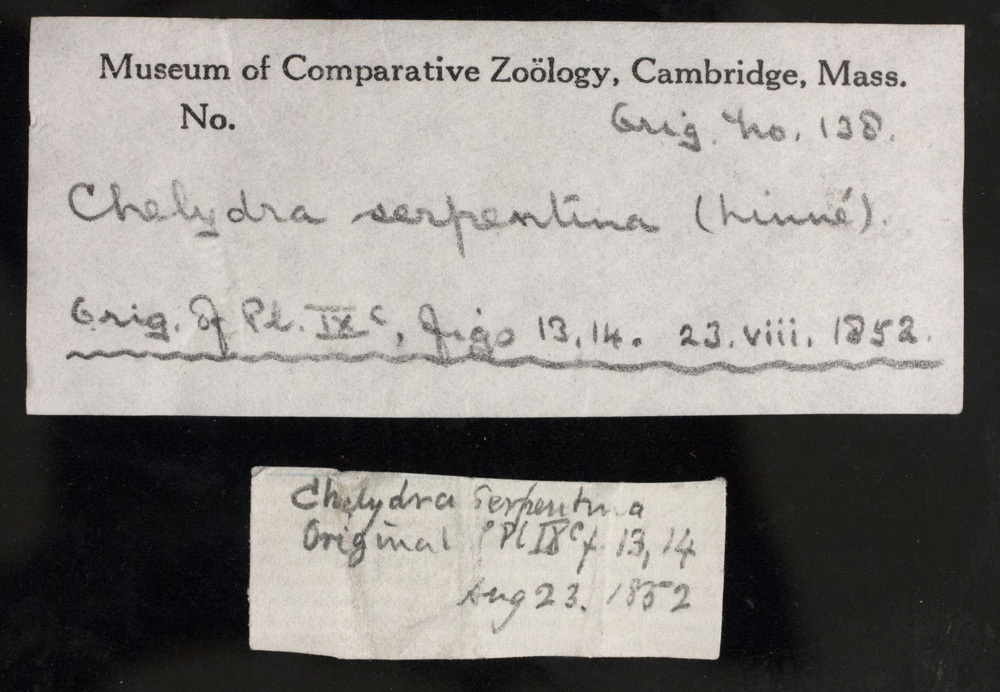 Museum of Comparative Zoölogy, Cambridge, Mass.
No. Orig. No. 138.
Chelydra serpentina (Linné).
Orig. of Pl. IXc, figs 13, 14. 23. viii. 1852.
Chelydra Serpentina
Original Pl IXc f. 13, 14
Aug 23. 1852